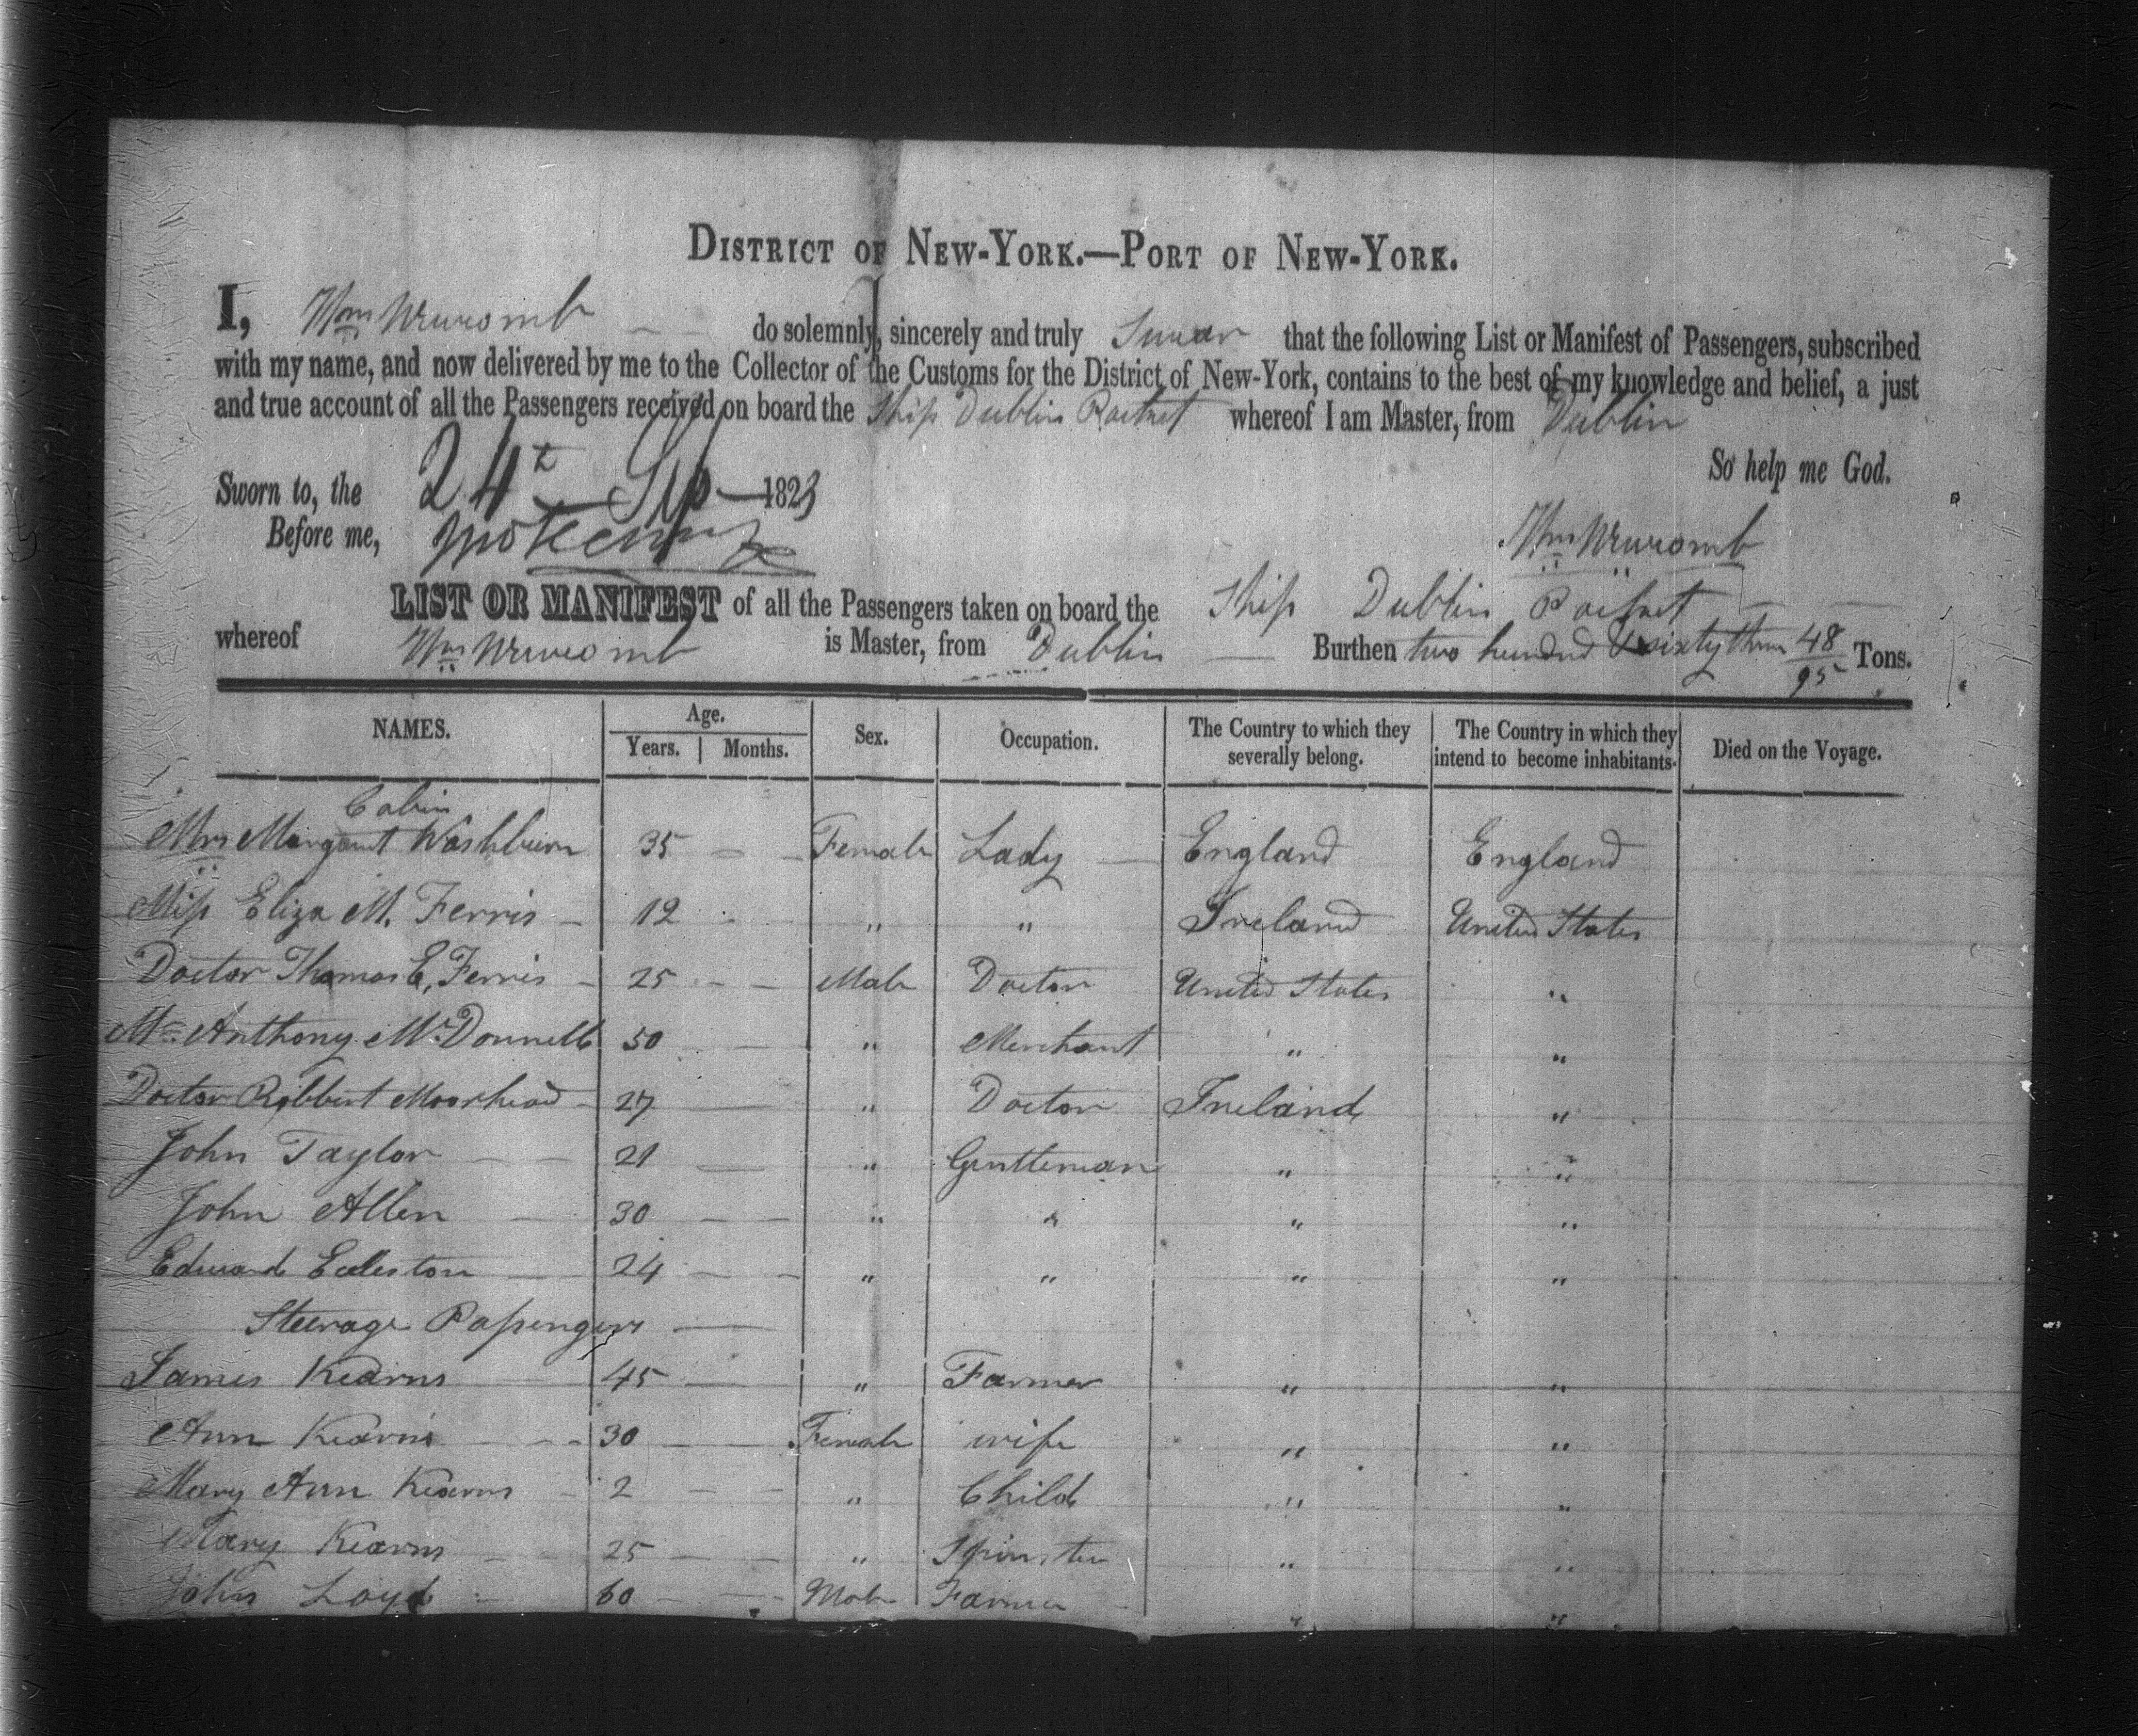 DISTRICT OF NEW-YORK.—PORT OF NEW-YORK.
I, Wm Newcomb do solemnly, sincerely and truly Swear that the following List or Manifest of Passengers, subscribed
with my name, and now delivered by me to the Collector of the Customs for the District of New-York, contains to the best of my knowledge and belief, a just
and true account of all the Passengers received on board the Ship Dublin Packet whereof I am Master, from Dublin
So help me God.
Sworn to, the 24th Sep 1823
Before me,
Wm Newcomb
LIST OR MANIFEST of all the Passengers taken on board the Ship Dublin Packet
whereof Wm Newcomb is Master, from Dublin Burthen two hundred & sixty three 48/95 Tons.
NAMES. Age. Years. Months. Sex. Occupation. The Country to which they severally belong. The Country in which they intend to become inhabitants. Died on the Voyage.
Cabin
Mrs Margaret Washburn 35 — — Female Lady — England England
Miss Eliza M. Ferris — 12 — " " Ireland United States
Doctor Thomas E, Ferris — 25 — — Male Doctor United States "
Mr. Anthony McDonnell 50 — — " Merchant " "
Doctor Robbert Moorhead — 27 — " Doctor Ireland "
John Taylor — — 21 — " Gentleman " "
John Allen — 30 — — " " " "
Edward Eccleston — 24 — — " " " "
Steerage Passengers —
James Kearns — 45 — " Farmer " "
Ann Kearns — — 30 — — Female wife " "
Mary Ann Kearns — 2 — — " Child " "
Mary Kearns — 25 — — " Spinster " "
John Loyd 60 — — Male Farmer — " "